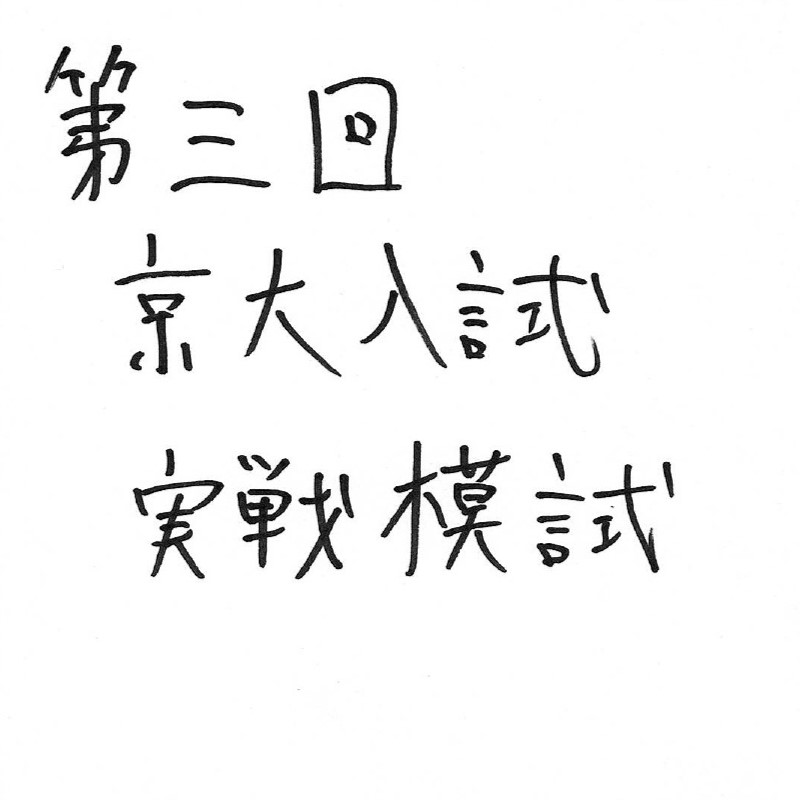 第三回
京大入試
実戦模試